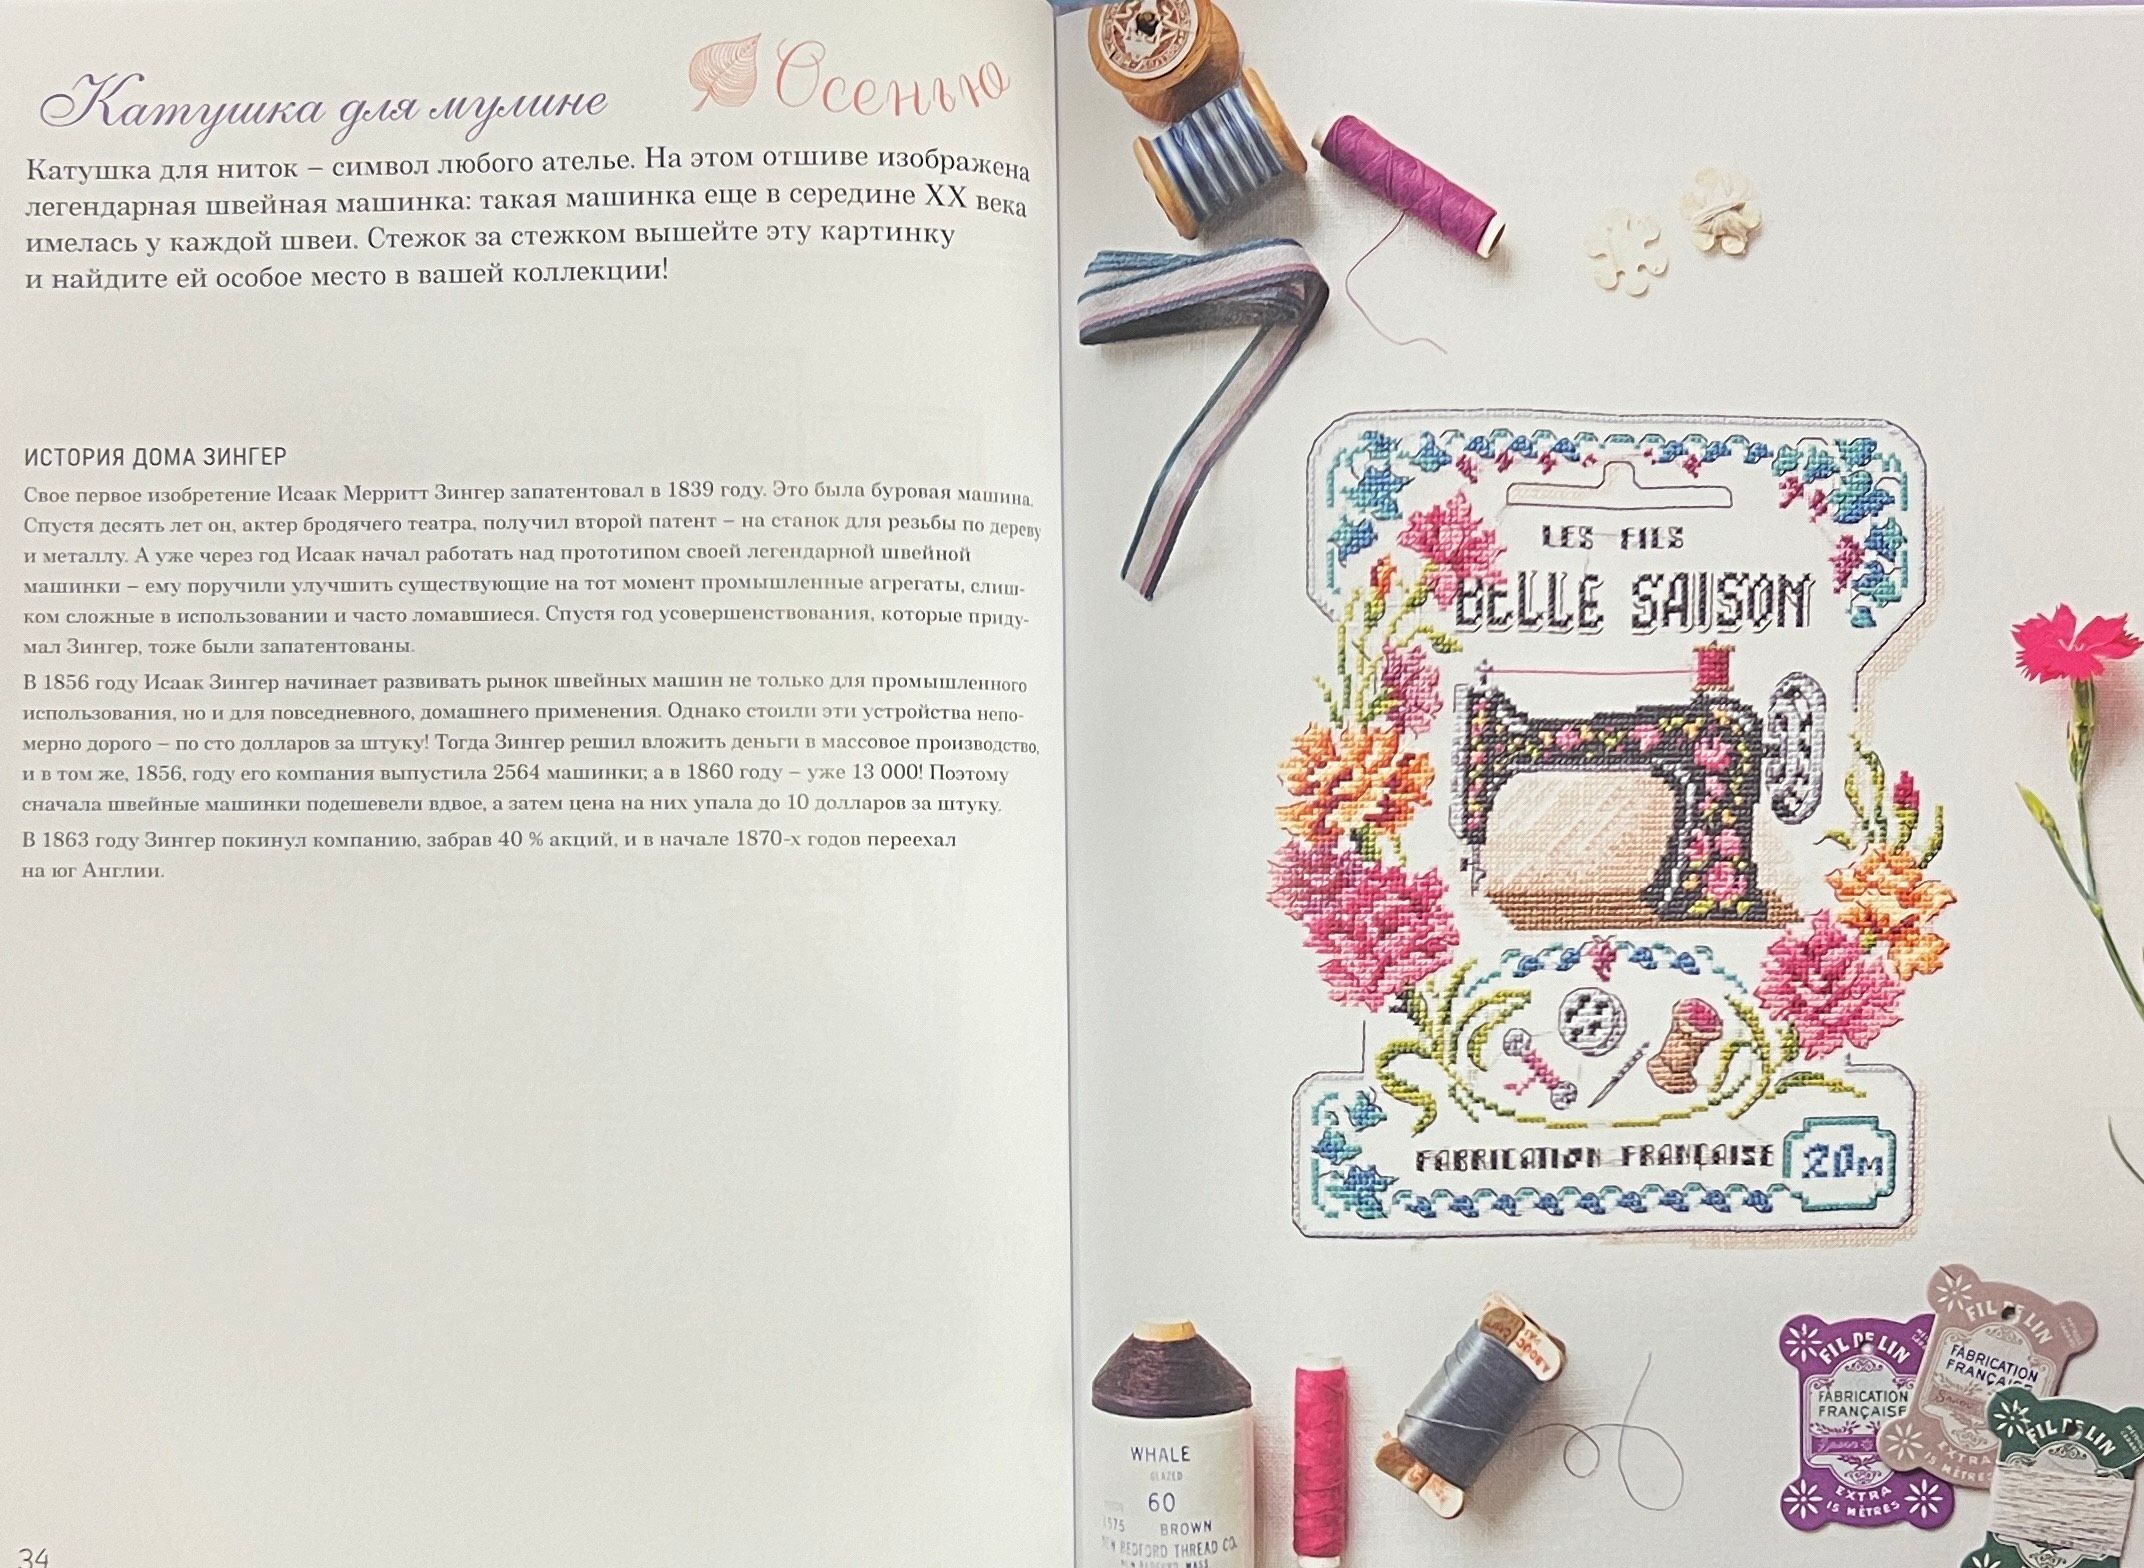 Катушка для мулине
Осенью
Катушка для ниток – символ любого ателье. На этом отшиве изображена
легендарная швейная машинка: такая машинка еще в середине XX века
имелась у каждой швеи. Стежок за стежком вышейте эту картинку
и найдите ей особое место в вашей коллекции!
ИСТОРИЯ ДОМА ЗИНГЕР
Свое первое изобретение Исаак Мерритт Зингер запатентовал в 1839 году. Это была буровая машина.
Спустя десять лет он, актер бродячего театра, получил второй патент – на станок для резьбы по дереву
и металлу. А уже через год Исаак начал работать над прототипом своей легендарной швейной
машинки – ему поручили улучшить существующие на тот момент промышленные агрегаты, слиш-
ком сложные в использовании и часто ломавшиеся. Спустя год усовершенствования, которые приду-
мал Зингер, тоже были запатентованы.
В 1856 году Исаак Зингер начинает развивать рынок швейных машин не только для промышленного
использования, но и для повседневного, домашнего применения. Однако стоили эти устройства непо-
мерно дорого – по сто долларов за штуку! Тогда Зингер решил вложить деньги в массовое производство,
и в том же, 1856, году его компания выпустила 2564 машинки; а в 1860 году – уже 13 000! Поэтому
сначала швейные машинки подешевели вдвое, а затем цена на них упала до 10 долларов за штуку.
В 1863 году Зингер покинул компанию, забрав 40 % акций, и в начале 1870-х годов переехал
на юг Англии.
34
LES FILS
BELLE SAISON
FABRICATION FRANÇAISE
20M
WHALE
GLAZED
60
BROWN
NEW BEDFORD THREAD CO.
NEW BEDFORD, MASS
FIL DE LIN
FABRICATION
FRANÇAISE
EXTRA
15 MÈTRES
FIL DE LIN
FABRICATION
FRANÇAISE
EXTRA
15 MÈTRES
FIL DE LIN